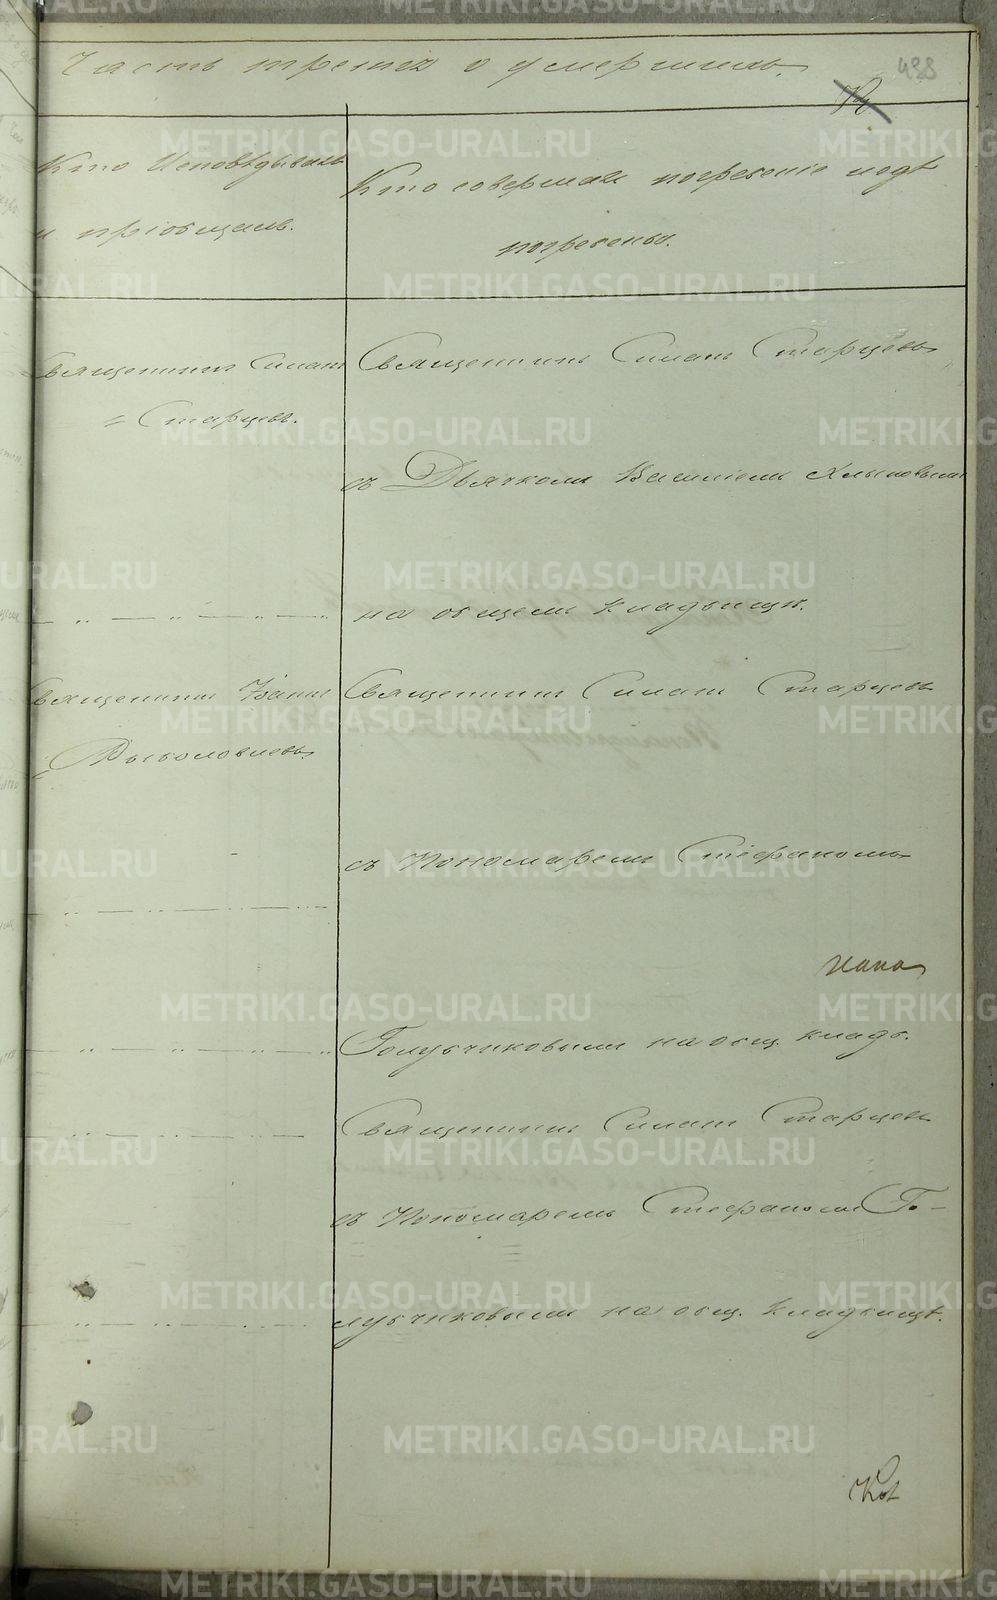 Часть третья о умершихъ.
488
Кто Исповѣдывалъ
и пріобщалъ.
Кто совершалъ погребеніе и гдѣ
погребены.
Священникъ Симеонъ
= Старцевъ.
Священникъ Симеонъ Старцевъ
съ Дьячкомъ Василіемъ Хлыновымъ
на общемъ кладбищѣ.
Священникъ Іоаннъ
= Рыболовлевъ
Священникъ Симеонъ Старцевъ
съ Пономаремъ Стефаномъ
Голубчиковымъ на общ. кладб.
Священникъ Симеонъ Старцевъ
съ Пономаремъ Стефаномъ Го-
лубчиковымъ на общ. кладбищѣ.
METRIKI.GASO-URAL.RU